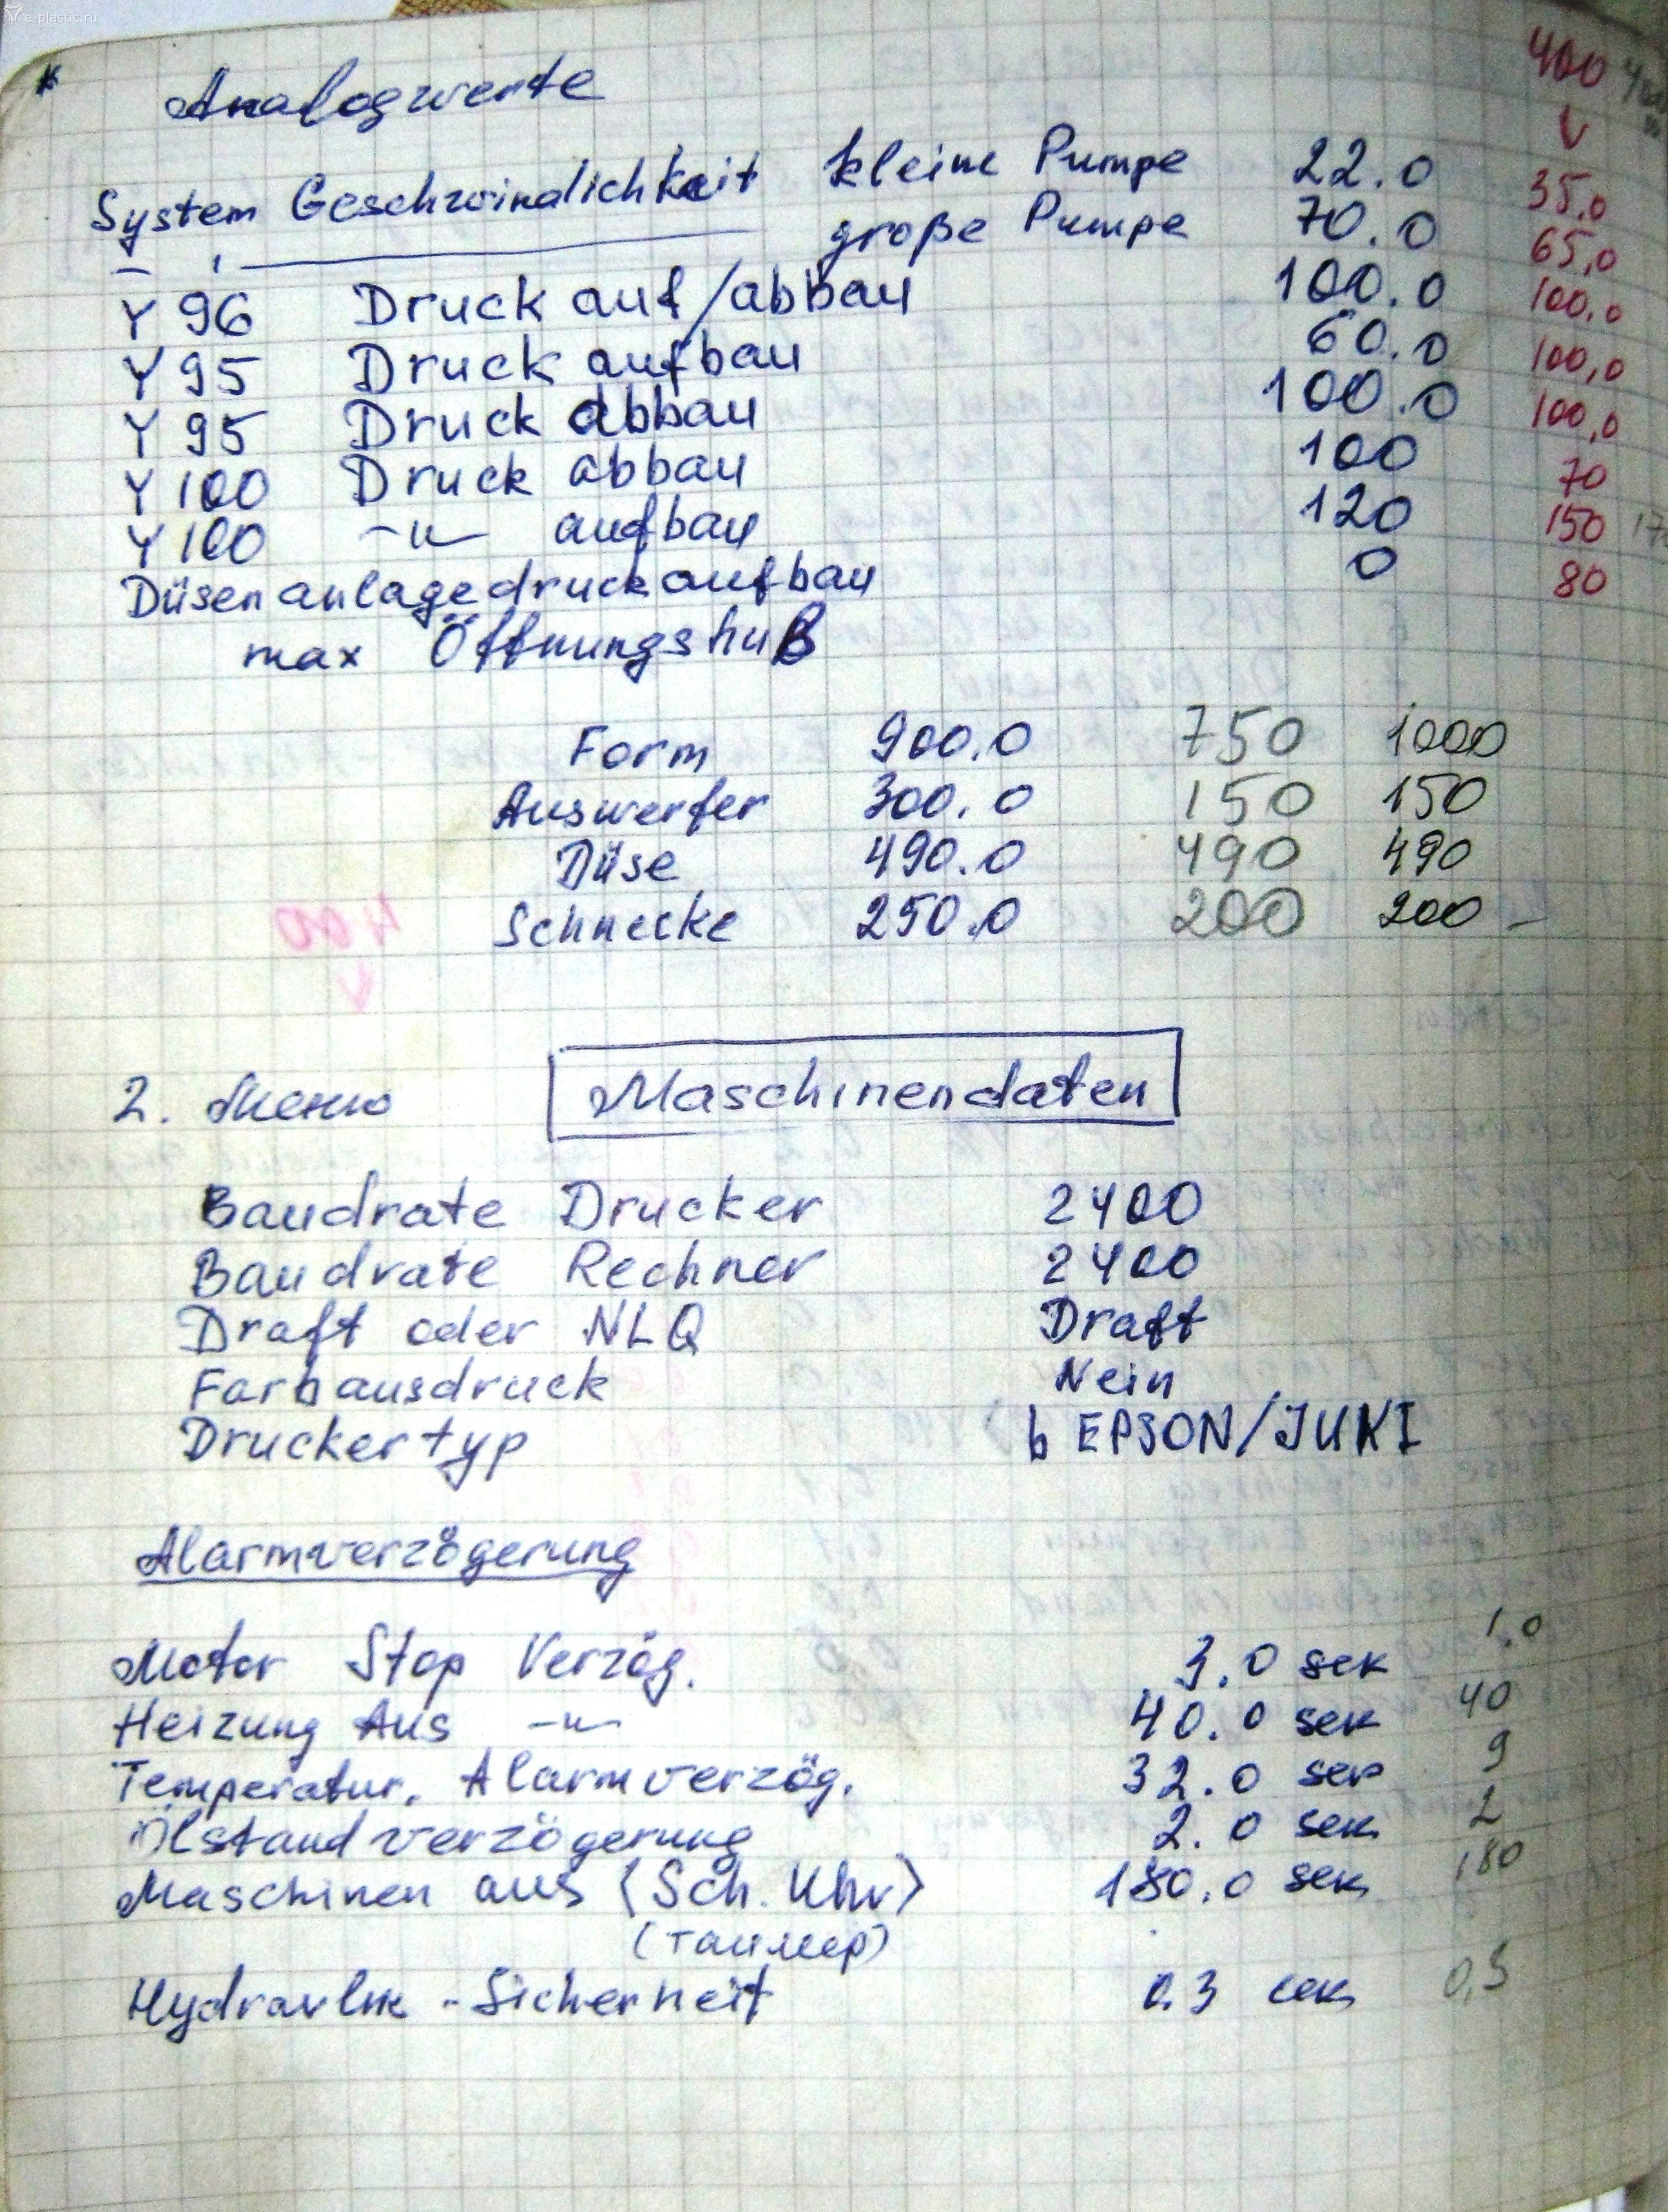 e-plastic.ru
* Analogwerte 400
System Geschwindlichkeit kleine Pumpe 22.0 35.0
große Pumpe 70.0 65,0
Y 96 Druck auf/abbau 100.0 100,0
Y 95 Druck aufbau 60.0 100,0
Y 95 Druck abbau 100.0 100,0
Y 100 Druck abbau 100 70
Y 100 -"- aufbau 120 150
Düsenanlagedruckaufbau 0 80
max Öffnungshub
Form 900.0 750 1000
Auswerfer 300.0 150 150
Düse 490.0 490 490
Schnecke 250.0 200 200 -
400
2. Меню Maschinendaten
Baudrate Drucker 2400
Baudrate Rechner 2400
Draft oder NLQ Draft
Farbausdruck Nein
Druckertyp b EPSON/JUKI
Alarmverzögerung
Motor Stop Verzög. 3.0 sek 1.0
Heizung Aus -"- 40.0 sek 40
Temperatur. Alarmverzög. 32.0 sek 9
Ölstandverzögerung 2.0 sek 2
Maschinen aus (Sch. Uhr) 180.0 sek 180
(таймер)
Hydravlik - Sicherheit 0.3 сек 0,5